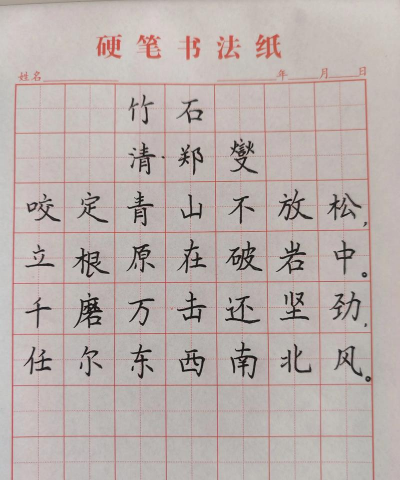 硬笔书法纸
姓名 年 月 日
竹石
清·郑燮
咬定青山不放松,
立根原在破岩中。
千磨万击还坚劲,
任尔东西南北风。